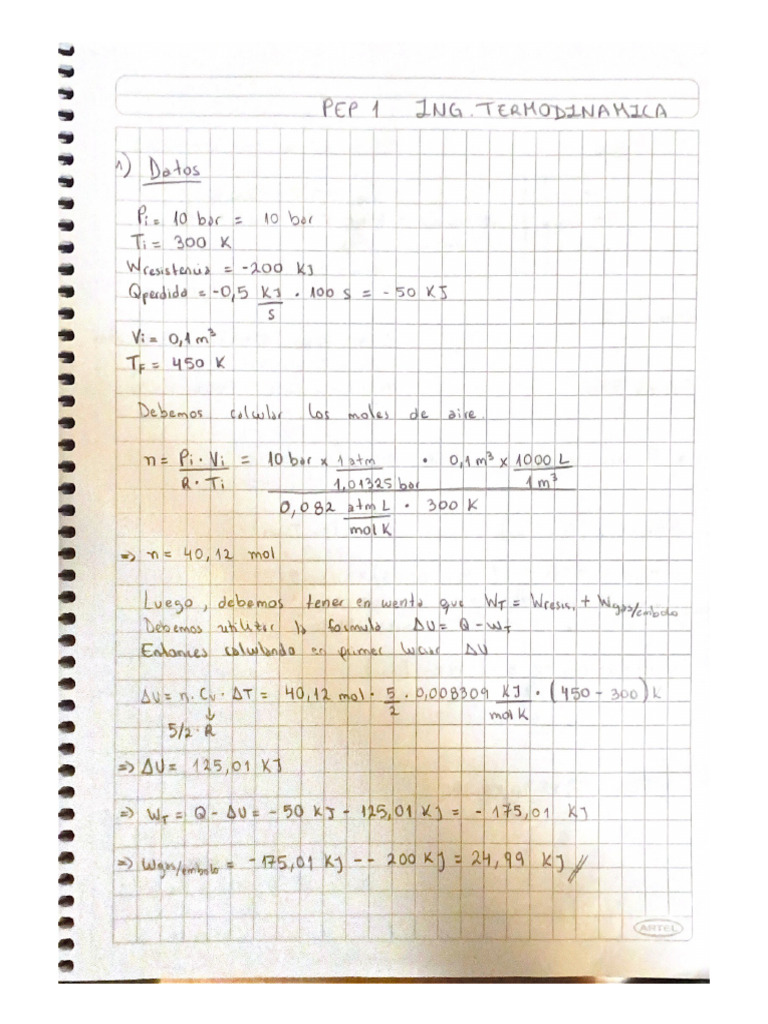 PEP 1 ING. TERMODINAMICA
1) Datos
Pi = 10 bar = 10 bar
Ti = 300 K
Wresistencia = -200 KJ
Qperdida = -0,5 KJ/s . 100 s = - 50 KJ
Vi = 0,1 m³
TF = 450 K
Debemos calcular los moles de aire.
n = Pi . Vi / R . Ti = 10 bar x 1 atm / 1,01325 bar . 0,1 m³ x 1000 L / 1 m³
0,082 atm L / mol K . 300 K
=> n = 40,12 mol
Luego, debemos tener en cuenta que WT = Wresis. + Wgas/embolo
Debemos utilizar la formula ΔU = Q - WT
Entonces calculando en primer lugar ΔU
ΔU = n . Cv . ΔT = 40,12 mol . 5/2 . 0,008309 KJ / mol K . (450 - 300) K
↓
5/2 . R
=> ΔU = 125,01 KJ
=> WT = Q - ΔU = - 50 KJ - 125,01 KJ = - 175,01 KJ
=> Wgas/embolo = - 175,01 KJ - - 200 KJ = 24,99 KJ //
ARTEL